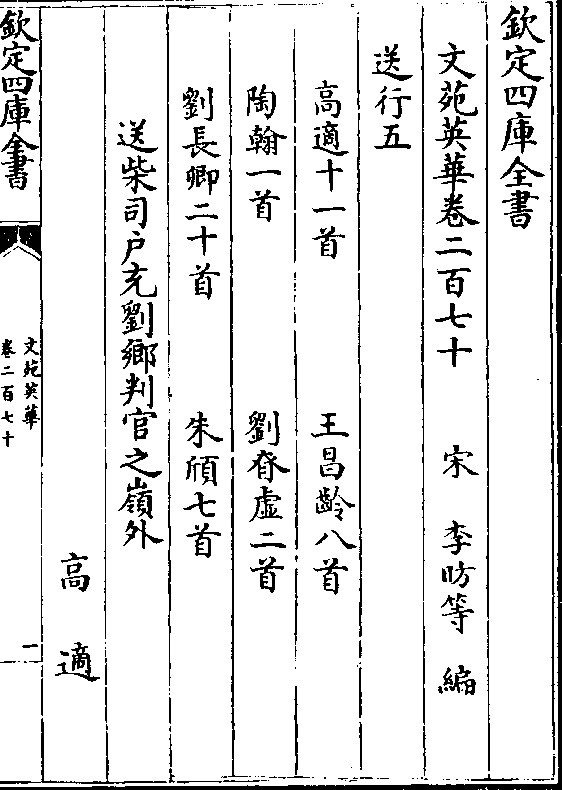 欽定四庫全書
文苑英華卷二百七十　宋　李昉等　編
送行五
高適十一首　王昌齡八首
陶翰一首　劉眘虛二首
劉長卿二十首　朱頎七首
送柴司户充劉鄉判官之嶺外
高適
欽定四庫全書
文苑英華
卷二百七十
一